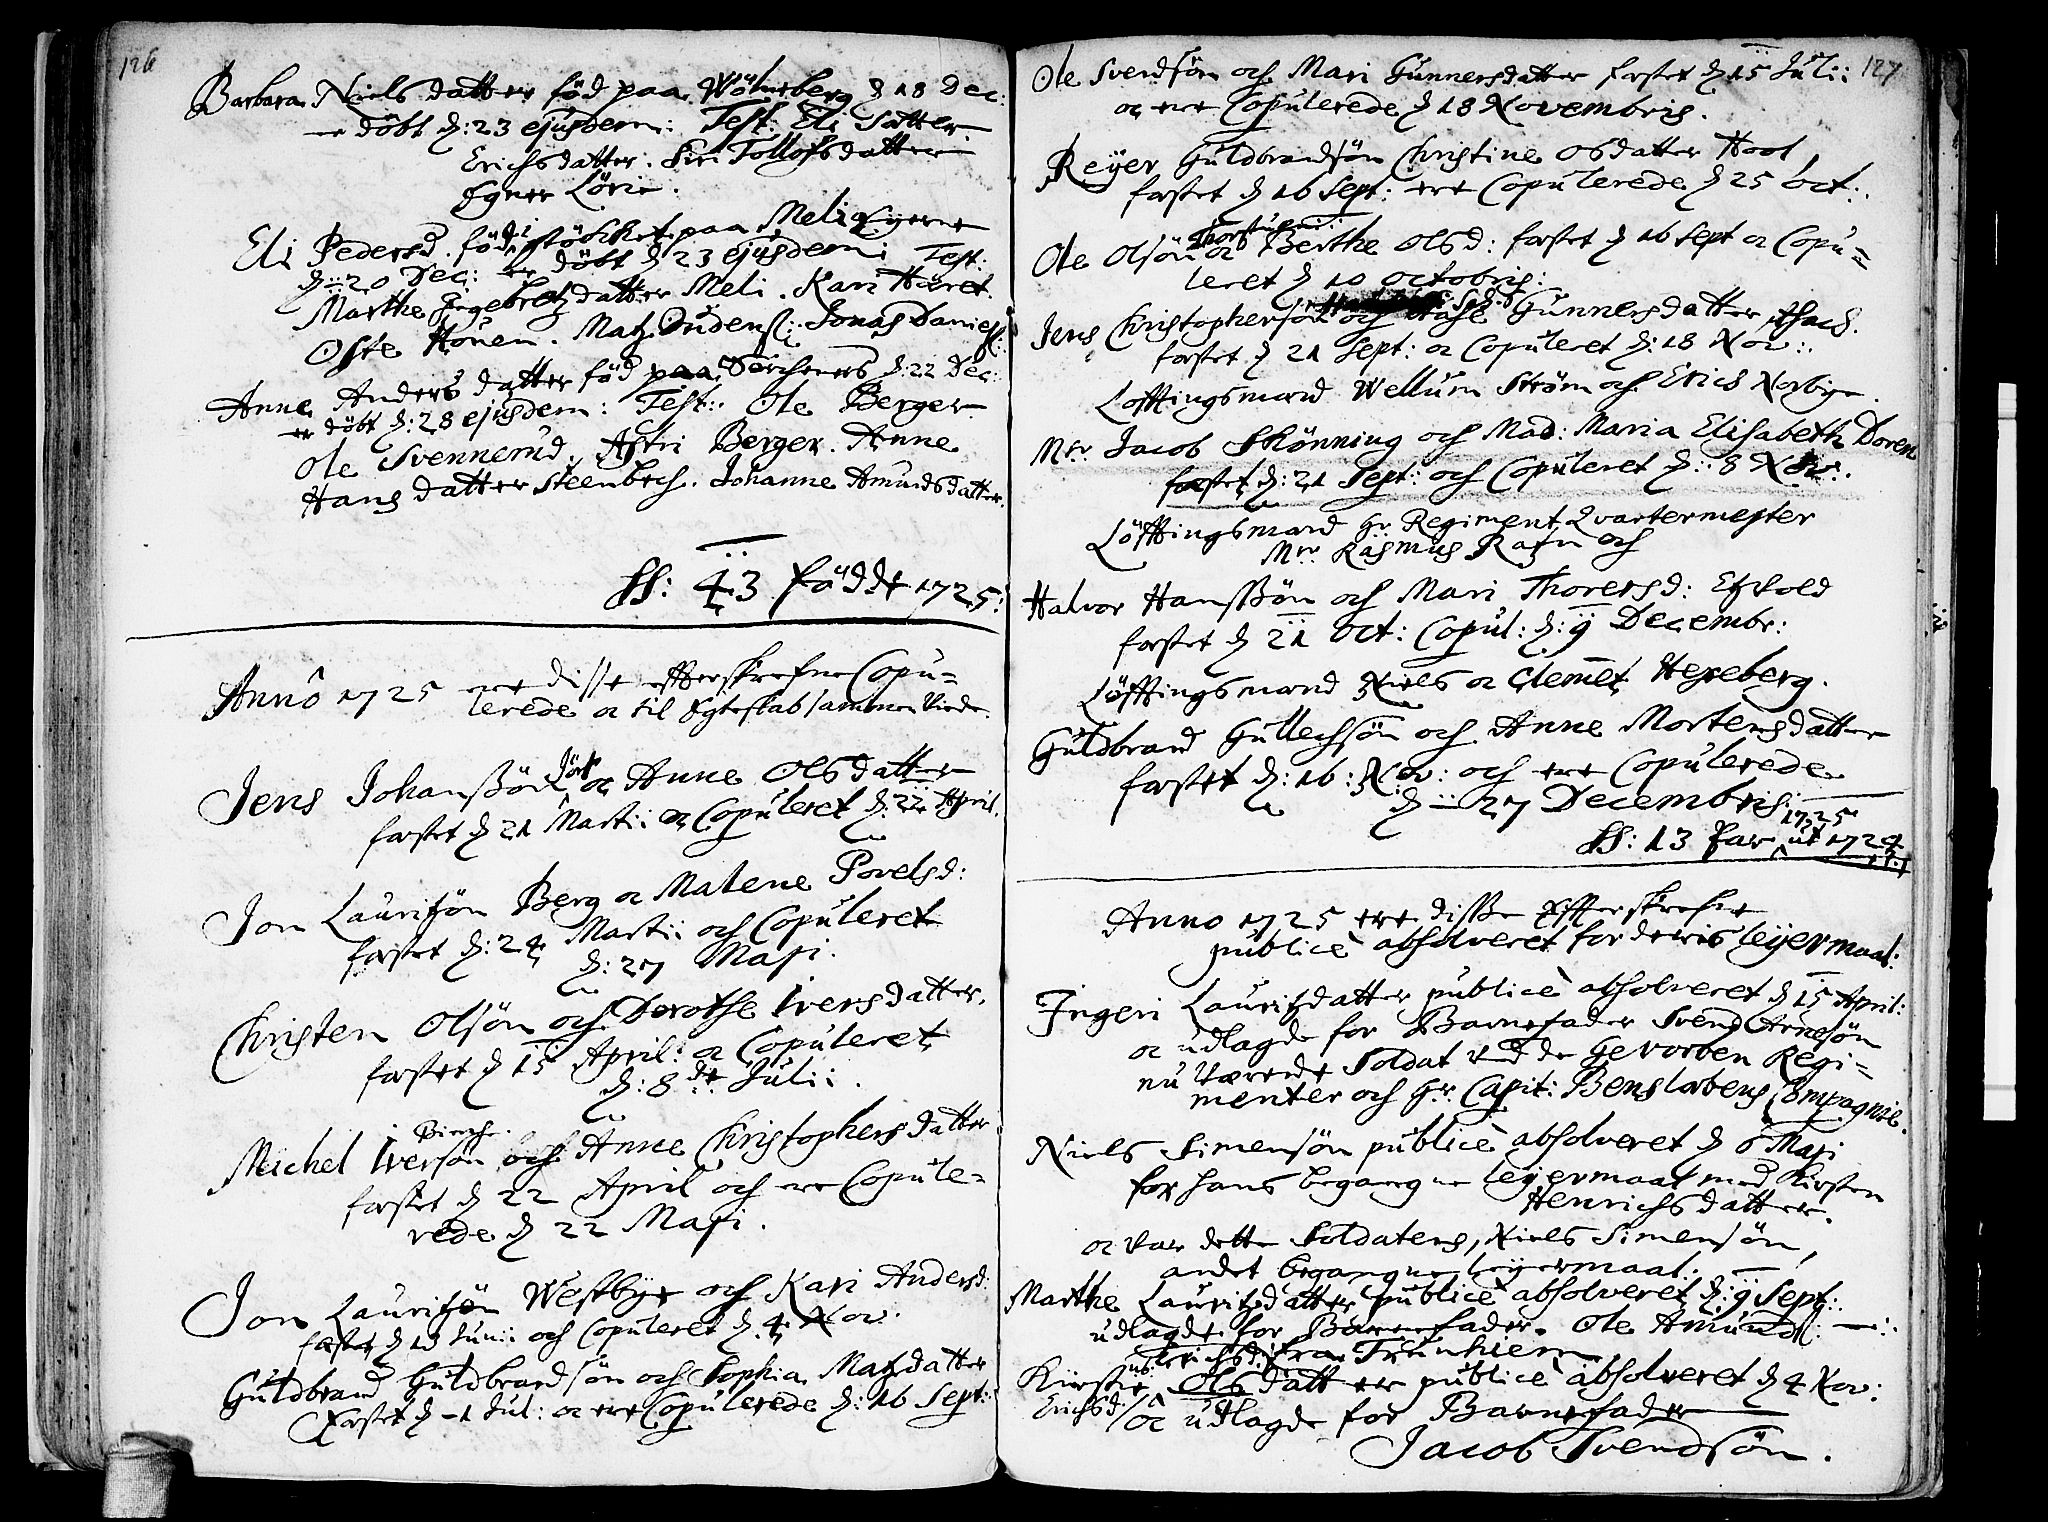 126
Barbara Niels datter föd paa Wölneberg d 18 Dec:
er döbt d: 23 ejusdem: Test: Eli Sätter
Erichsdatter. Siri Tollofsdatter
Egner Lörie.
Eli Pedersd. föd i stöchet paa Melie Eyerne
d: 20 Dec: er döbt d 23 ejusdem: Test:
Marthe Engebretzdatter Meli. Kari Häret.
Oste Hönen. Matz Budenß: Jonas Danielß:
Anne Anders datter föd paa d: 22 Dec:
er döbt d: 28 ejusdem: Test: Ole Berger
Ole Svennerud. Astri Berger. Anne
Hans datter Steenbech. Johanne Amunds datter.
SS: 43 födde 1725:
Anno 1725 ere disse effterskrefne Copu=
lerede oc til Egteskab sammen Viede.
Jens Johanßön oc Anne Olsdatter
festet d 21 Martii oc Copuleret d: 22 April.
Jon Lauritzön Berg oc Malene Povelsd:
festet d: 24 Martii och Copuleret
d: 27 Maji.
Christen Olsön och Dorothe Iversdatter.
festet d 15 April: oc Copuleret
d: 8 de Julii.
Bierche.
Michel Iversön och Anne Christophersdatter
festet d 22 April och ere Copule=
rede d 22 Maji.
Jon Lauritzön Westbye och Kari Andersd:
festet d 13 Junii och Copuleret d. 4 Nov:
Guldbrand Guldbrandsön och Sophia Matzdatter
Festet d 1 Jul: oc ere Copulerede d: 16 Sept:
127
Ole Svendsön och Mari Gunnersdatter festet d 15 Julii
oc ere Copulerede d 18 Novembris.
Reÿer Guldbrandsön Christine Osdatter Hool,
festet d 16 Sept: ere Copulerede d 25 Oct:
Ole Olsön oc Berthe Olsd: festet d 16 Sept oc Copu=
leret d 10 Octobris:
Jens Christophersön och Gunnersdatter
festet d 21 Sept: oc Copuleret d: 18 Nov:
Löfftingsmand Wellum Ström och Erich Norbye.
Mr. Jacob Skönning och Mad: Maria Elisabeth Doren
festet d: 21 Sept: och Copuleret d: 8 Nov:
Löfftingsmand Hr Regiment Qvartermester
Mr. Rasmus Rafn och
Halvor Hansßön och Mari Thoresd: Etzvold
festet d 21 Oct: Copul: d: 9 Decembr:
Löfftingsmend Niels oc Clemmet Hexeberg.
Guldbrand Gullechsön och Anne Mortensdatter
festet d: 16: Nov: och ere Copulerede
d 27 Decembris.
1725
SS: 13 Par ut 1724
Anno 1725 ere disse Effterskrefne
publicè absolveret for deris leÿermaal:
Ingeri Lauritzdatter publicè absolveret d 15 April:
oc udlagde for Barnefader Svend Arnesön
nu Værende Soldat ved de Gevorben Regi=
menter och Hr Capit: Benstorbens Compagnie.
Niels Simensön publicè absolveret d 6 Maji
for hans begangne leÿermaal med Kirsten
Henrichsdatter.
oc var dette Soldatens, Niels Simensön,
andet begangne leÿermaal:
Marthe Lauritzdatter publicè absolveret d: 9 Sept:
udlagde for Barnefader. Ole Amundß:
fra Trunhiem
Kirstie Olsdatter publicè absolveret d 4 Nov:
Erichsd: / oc udlagde for Barnefader
Jacob Svendsön.